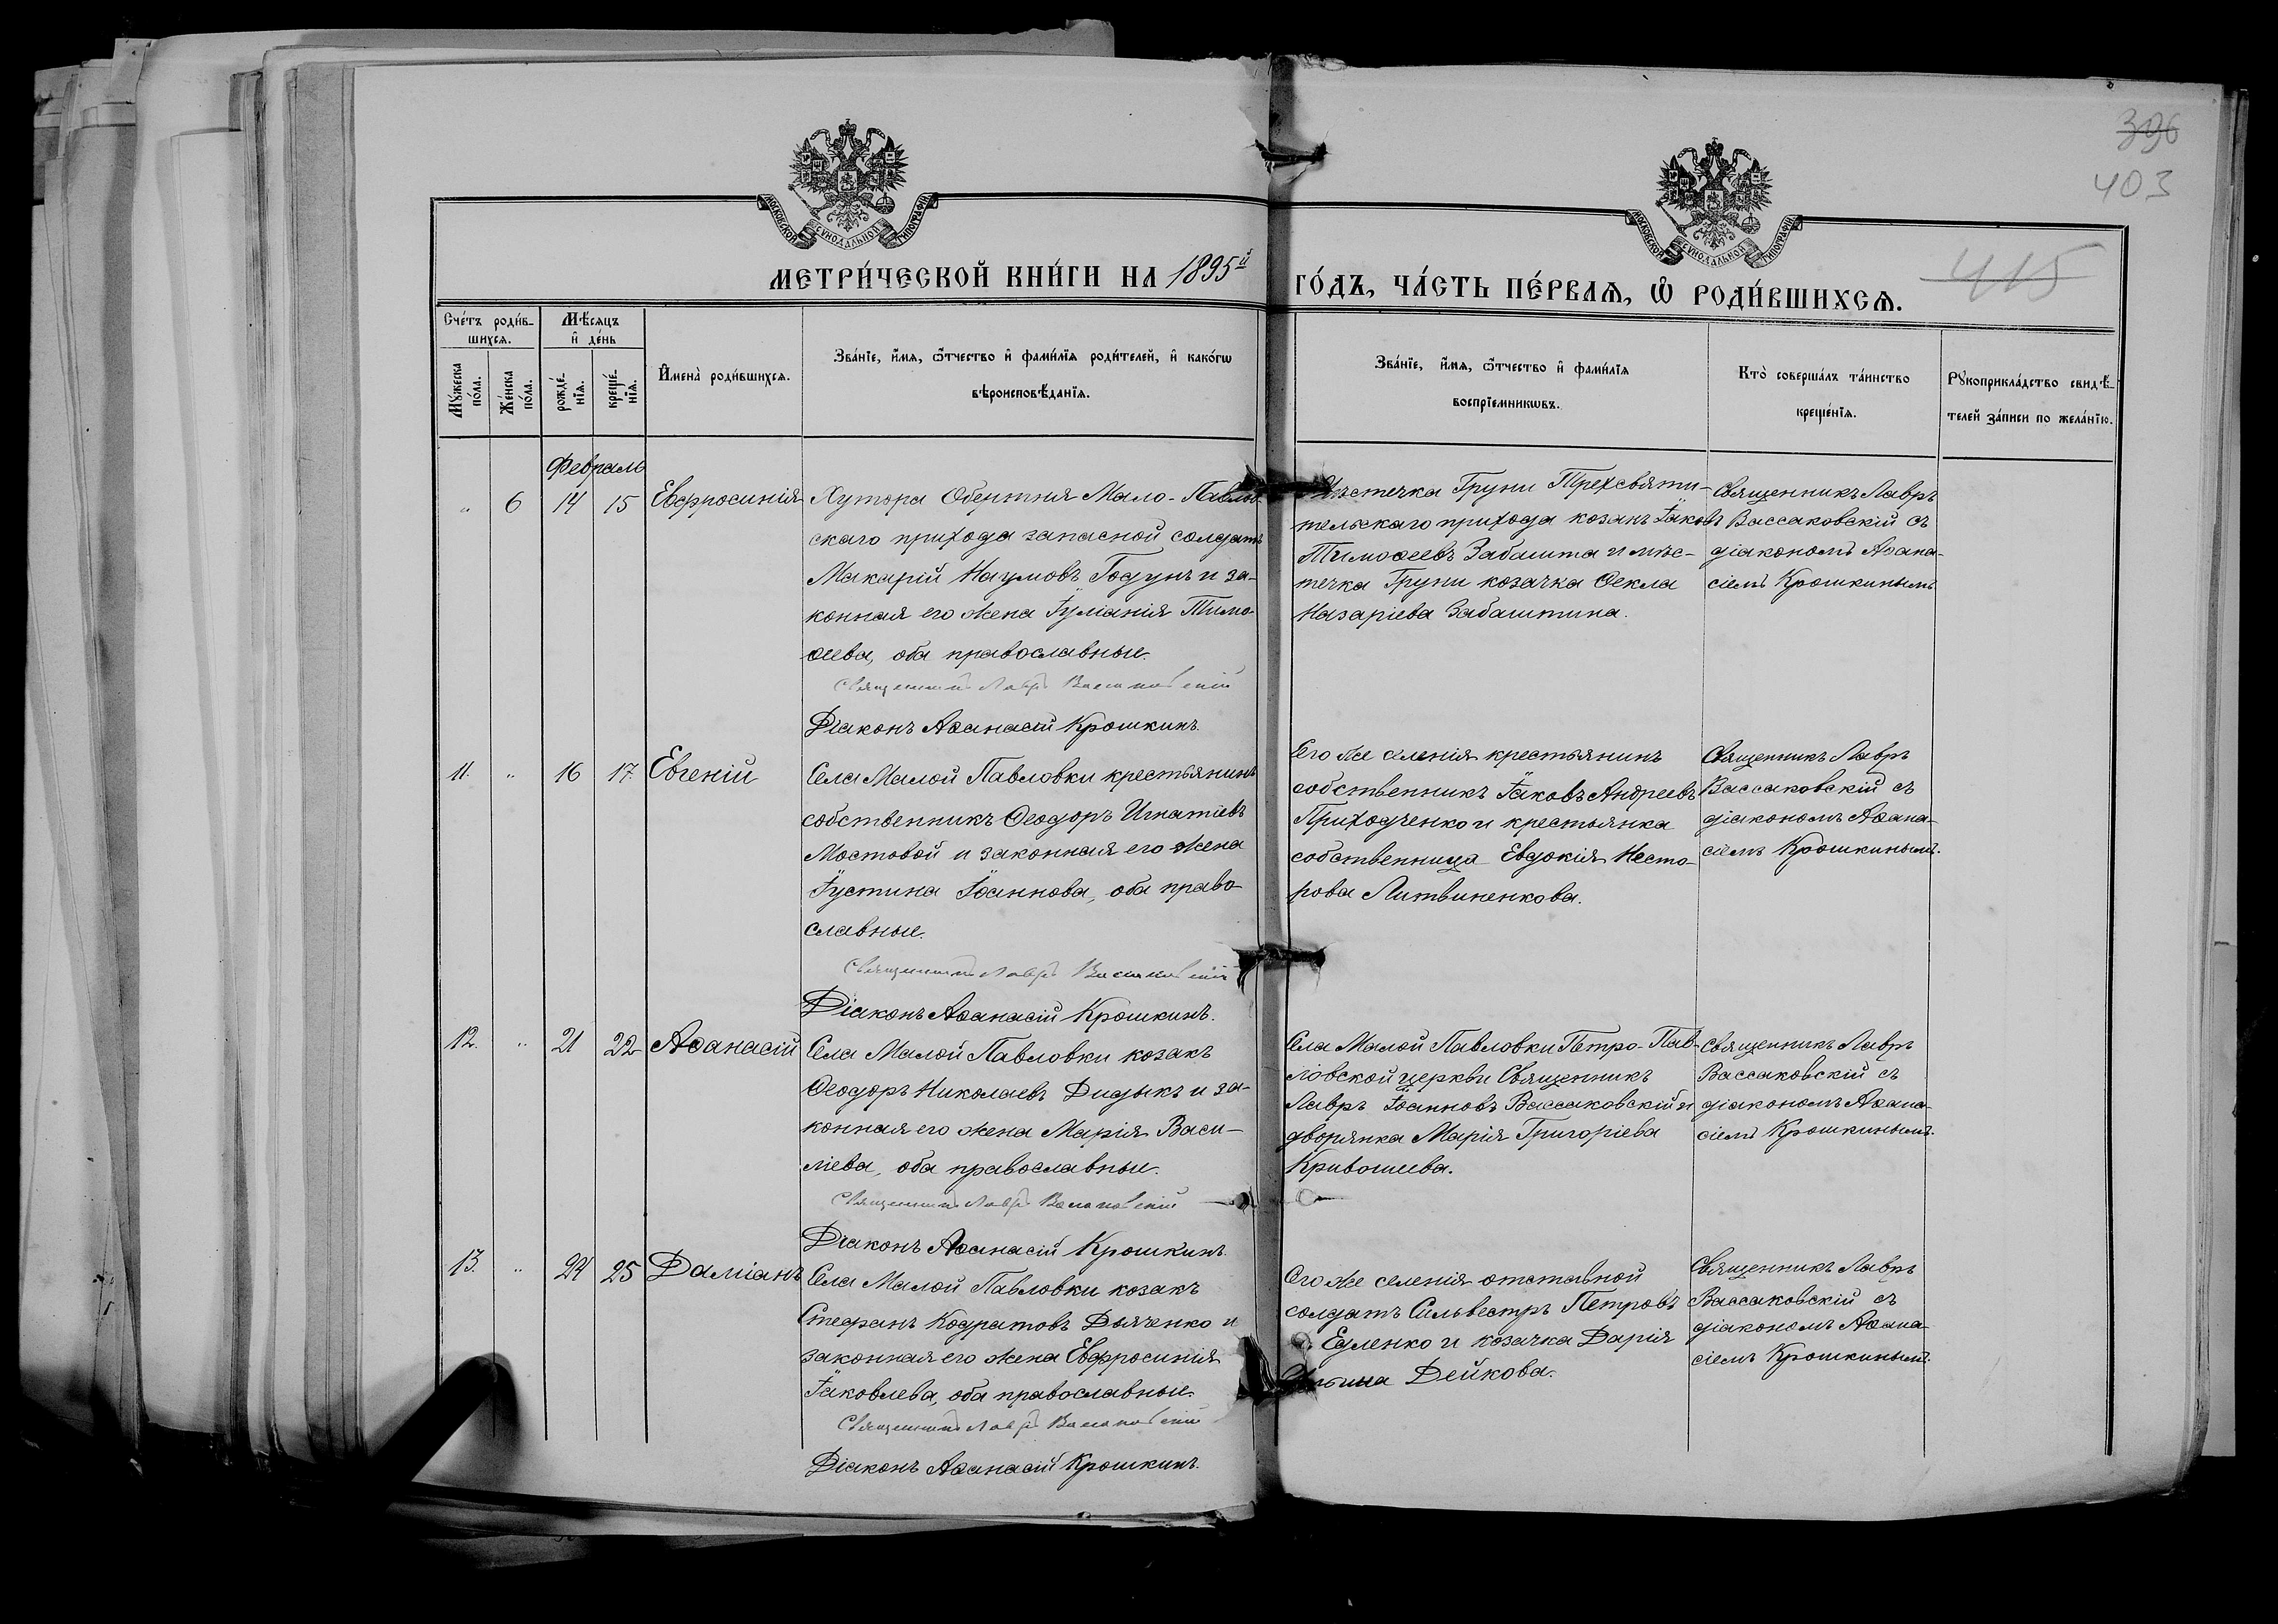 396
403
415
МОСКОВСКОЙ СѴНОДАЛЬНОЙ ТИПОГРАФІИ
МОСКОВСКОЙ СѴНОДАЛЬНОЙ ТИПОГРАФІИ
МЕТРИ́ЧЕСКОЙ КНИ́ГИ НА 1895й ГО́ДЪ, ЧА́СТЬ ПЕ́РВАѦ, Ѽ РОДИ́ВШИХСѦ.
Сче́тъ роди́в-
шихсѧ.
Мꙋ́жеска по́ла.
Же́нска по́ла.
Мѣ́сѧцъ
и҆ де́нь
рожде́-
нїѧ.
креще́-
нїѧ.
И҆мена̀ роди́вшихсѧ.
Зва́нїе, и҆́мѧ, ѻ҆́тчество и҆ фами́лїѧ роди́телей, и҆ како́гѡ
вѣроисповѣ́данїѧ.
Зва́нїе, и҆́мѧ, ѻ҆́тчество и҆ фами́лїѧ
воспрїе́мникѡвъ.
Кто̀ соверша́лъ та́инство
креще́нїѧ.
Рꙋкоприкла́дство свидѣ́-
телей за́писи по жела́нїю.
Февраль
" 6 14 15 Евфросинія
Хутора Обертня Мало-Павлов-
скаго прихода запасной солдатъ
Макарій Наумовъ Годунъ и за-
конная его жена Іуліанія Тимо-
ѳеева, оба православные.
Священникъ Лавръ Вассаковскій
Діаконъ Аѳанасій Крошкинъ.
Мѣстечка Груни Трехсвяти-
тельскаго прихода козакъ Іаковъ
Тимоѳеевъ Забашта и мѣс-
течка Груни козачка Ѳекла
Назаріева Забаштина.
Священникъ Лавръ
Вассаковскій съ
діакономъ Аѳана-
сіемъ Крошкинымъ
11. " 16 17. Евгеній
Села Малой Павловки крестьянинъ
собственникъ Ѳеодоръ Игнатіевъ
Мостовой и законная его жена
Іустина Іоаннова, оба право-
славные.
Священникъ Лавръ Вассаковскій
Діаконъ Аѳанасій Крошкинъ.
Того же селенія крестьянинъ
собственникъ Іаковъ Андреевъ
Приходченко и крестьянка
собственница Евдокія Несто-
рова Литвиненкова.
Священникъ Лавръ
Вассаковскій съ
діакономъ Аѳана-
сіемъ Крошкинымъ.
12. " 21 22 Аѳанасій
Села Малой Павловки козакъ
Ѳеодоръ Николаевъ Дидыкъ и за-
конная его жена Марія Васи-
ліева, оба православные.
Священникъ Лавръ Вассаковскій
Діаконъ Аѳанасій Крошкинъ.
Села Малой Павловки Петро-Пав-
ловской церкви Священникъ
Лавръ Іоанновъ Вассаковскій и
дворянка Марія Григоріева
Кривошеева.
Священникъ Лавръ
Вассаковскій съ
діакономъ Аѳана-
сіемъ Крошкинымъ.
13. " 24 25 Даміанъ
Села Малой Павловки козакъ
Стефанъ Кодратовъ Дьяченко и
законная его жена Евфросинія
Іаковлева, оба православные.
Священникъ Лавръ Вассаковскій
Діаконъ Аѳанасій Крошкинъ.
Того же селенія отставной
солдатъ Сильвестръ Петровъ
Едленко и козачка Дарія
Дейкова.
Священникъ Лавръ
Вассаковскій съ
діакономъ Аѳана-
сіемъ Крошкинымъ.